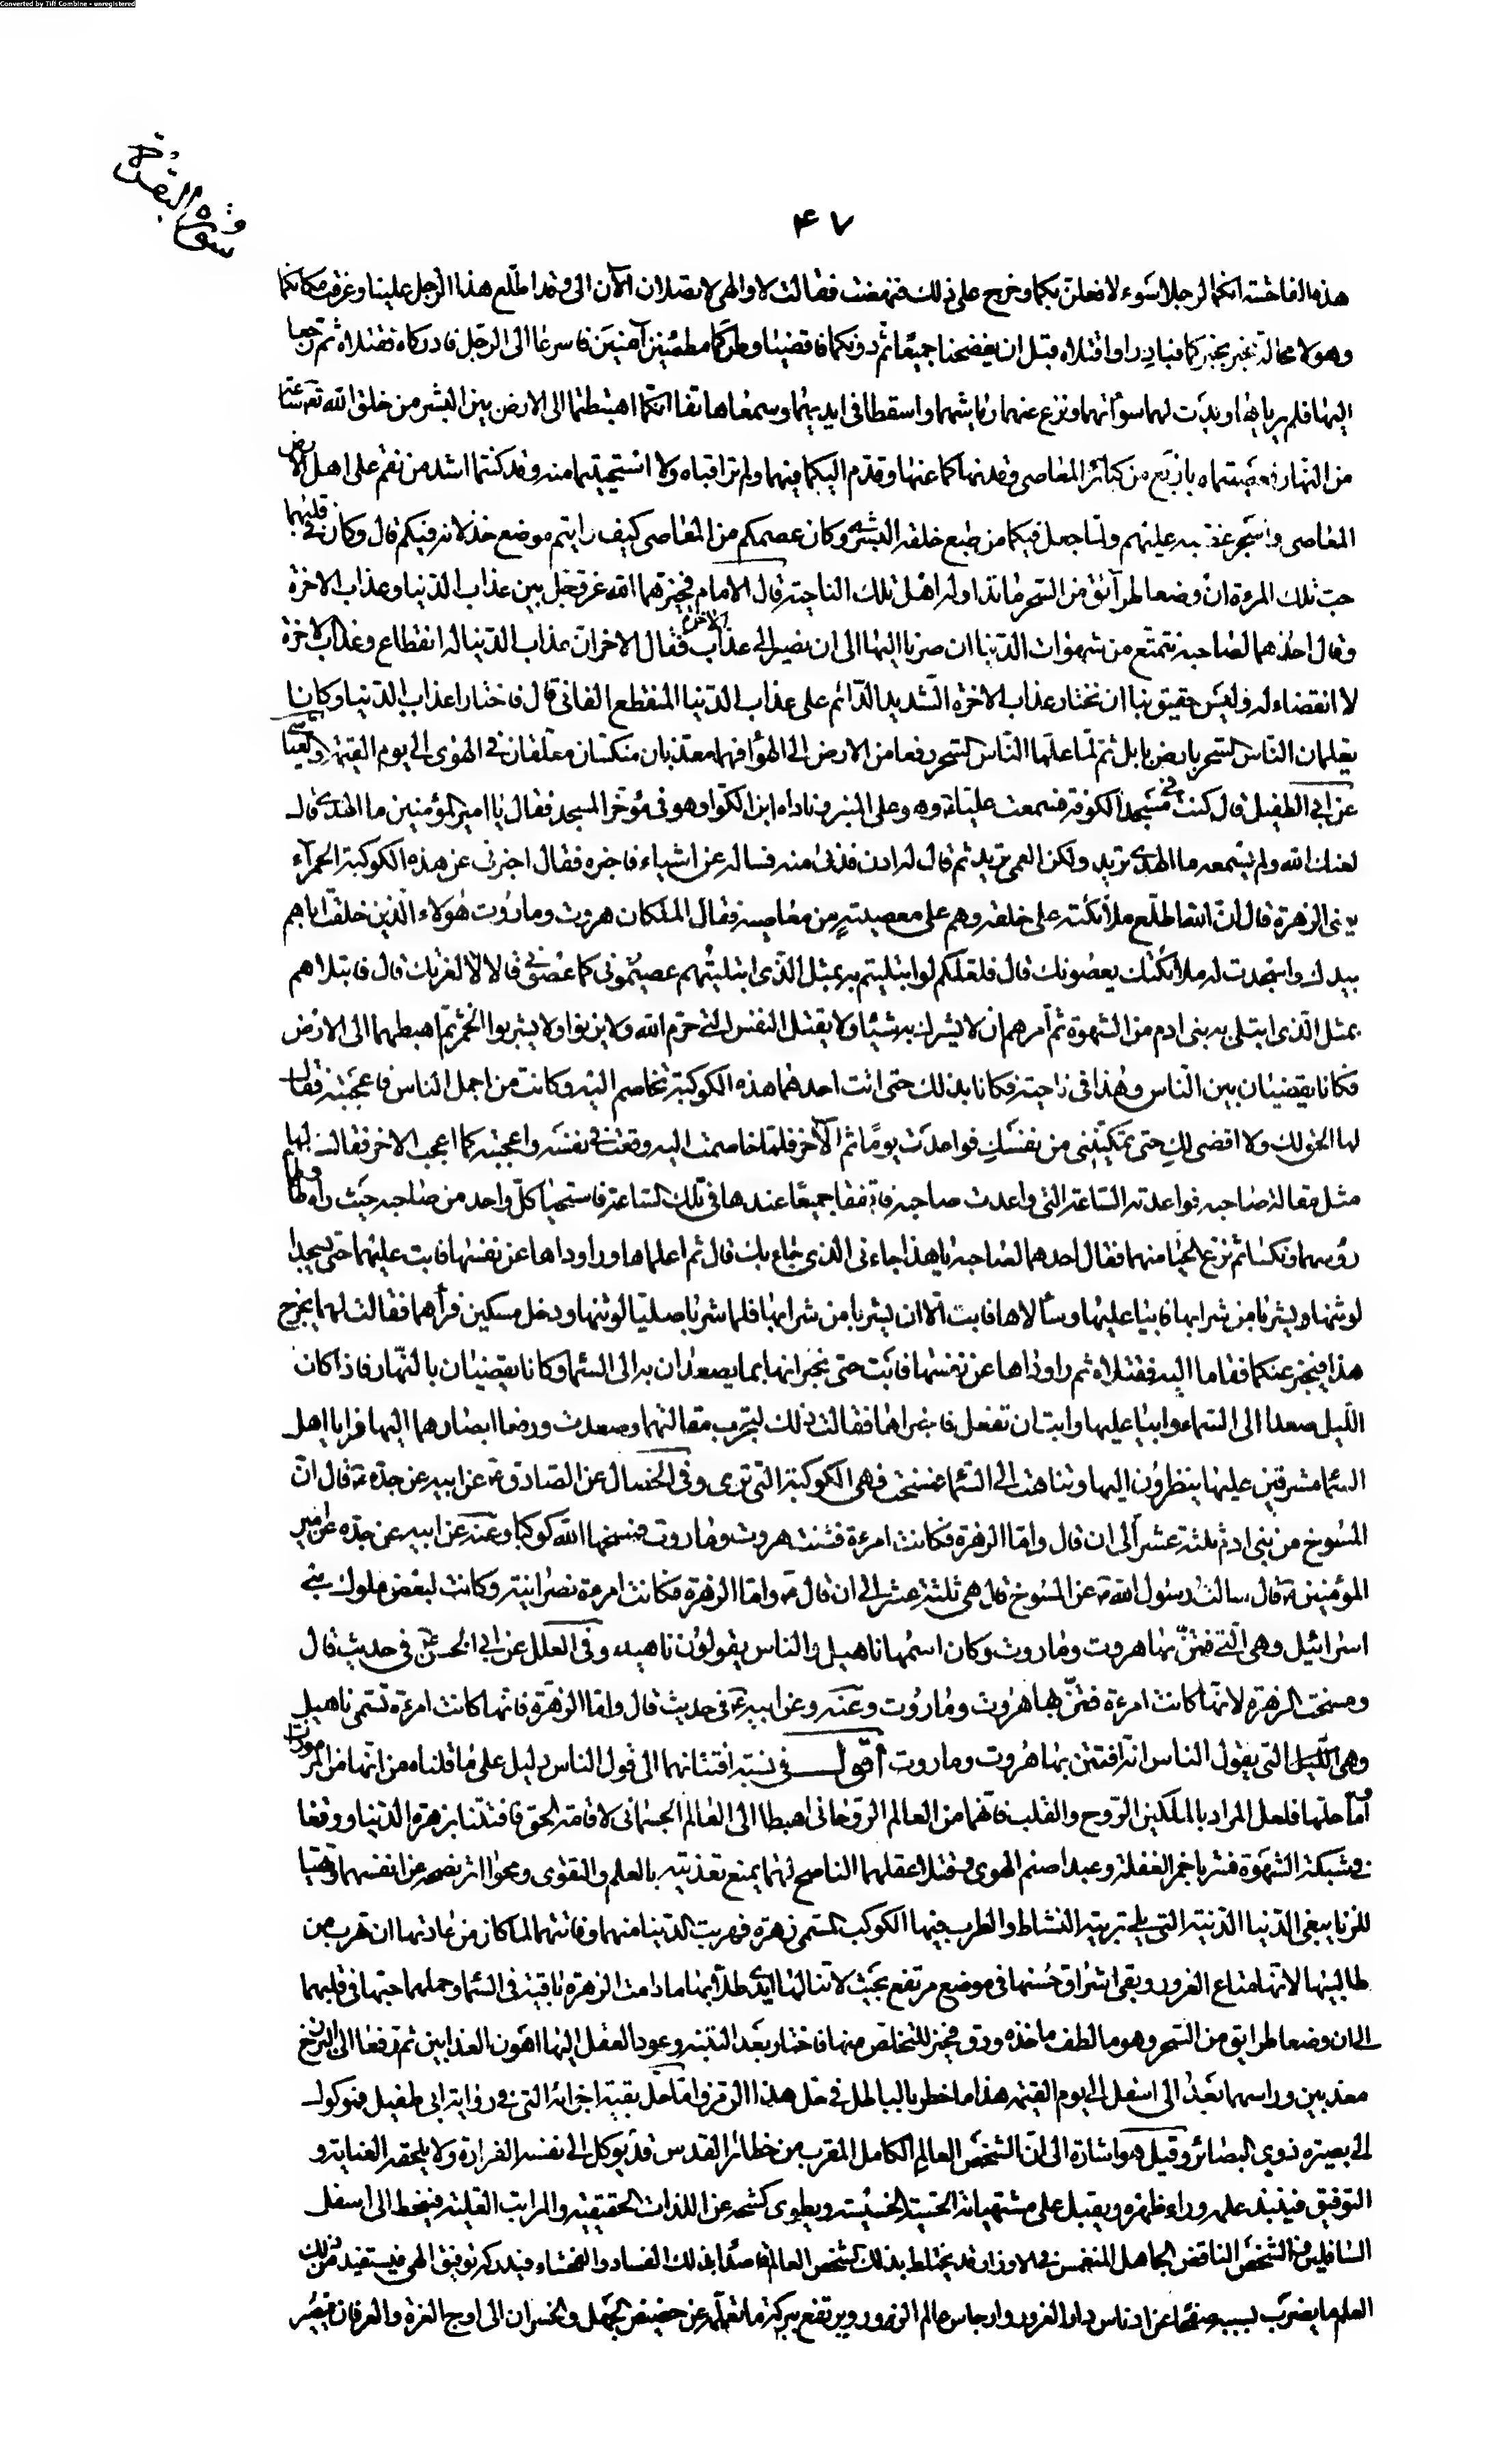 Converted by Tiff Combine - unregistered
سورة البقرة
۴۷
هذه الفاحشة انكما لرجلا سوء لافعلن بكما وخرج على ذلك فنهضت فقالت لا والهى لا تصلان الآن الى وقد اطلع هذا الرجل علينا وعرف مكانكما
وهو لا محالة يخبر بخبركما فبادرا واقتلاه قبل ان يفضحنا جميعا ثم دونكما فاقضيا وطركما مطمئنين آمنين فاسرعا الى الرجل فادركاه فقتلاه ثم رجعا
اليها فلم يرياها وبدت لهما سوأتهما ونزع عنهما رياشهما واسقطا فى ايديهما وسمعا هاتفا انكما اهبطتما الى الارض بين البشر من خلق الله تع ساعة
من النهار فعصيتماه باربع من كبائر المعاصى وقد نهاكما عنها وقدم اليكما فيها ولم تراقباه ولا استحييتما منه وقد كنتما اشد من نقم على اهل الارض
المعاصى واسجر غضبه عليهم ولما جعل فيكما من طبع خلقه البشرى وكان عصمكم من المعاصى كيف رايتم موضع خذلانه فيكم قال وكان فى قلبهما
حب تلك المرءة ان وضعا طرائق من السحر ما تداوله اهل تلك الناحية قال الامام فخيرهما الله عز وجل بين عذاب الدنيا وعذاب الاخرة
وقال احدهما لصاحبه نتمتع من شهوات الدنيا ان صرنا اليها الى ان نصير الى عذاب الاخرة فقال الاخر ان عذاب الدنيا له انقطاع وعذاب الاخرة
لا انقضاء له وليس حقيق بنا ان نختار عذاب الاخرة الشديد الدائم على عذاب الدنيا المنقطع الفانى قال فاختارا عذاب الدنيا وكانا
يعلمان الناس السحر بارض بابل ثم لما علما الناس السحر رفعا من الارض الى الهوا فهما معذبان منكسان معلقان فى الهوى الى يوم القيمة والعياشى
عن ابى الطفيل قال كنت فى مسجد الكوفة فسمعت عليا وهو على المنبر وناداه ابن الكوا وهو فى مؤخر المسجد فقال يا امير المؤمنين ما الهدى قال
لعنك الله ولم يسمعه ما الهدى تريد ولكن العمى تريد ثم قال له ادن فدنى منه فساله عن اشياء فاخبره فقال اخبرنى عن هذه الكوكبة الحمرآء
يعنى الزهرة قال ان الله اطلع ملائكته على خلقه وهم على معصية من معاصيه فقال الملكان هروت وماروت هؤلاء الذين خلقت اباهم
بيدك واسجدت له ملائكتك يعصونك قال فلعلكم لو ابتليتم بمثل الذى ابتليتهم عصيتمونى كما عصونى قالا لا لعزتك قال فابتلاهم
بمثل الذى ابتلى به بنى ادم من الشهوة ثم امرهم ان لا يشرك به شيئا ولا يقتل النفس التى حرم الله ولا يزنوا ولا يشربوا الخمر ثم اهبطهما الى الارض
فكانا يقضيان بين الناس وهذا فى ناحية فكانا بذلك حتى اتت احدهما هذه الكوكبة تخاصم اليه وكانت من اجمل الناس فاعجبته فقال
لها الحق لك ولا اقضى لك حتى تمكنينى من نفسك فواعدت يوما ثم الآخر فلما خاصمت اليه وقعت فى نفسه واعجبته كما اعجب الاخر فقالت لهما
مثل مقالة صاحبه فواعدته الساعة التى واعدت صاحبه فاتفقا جميعا عندها فى تلك الساعة فاستحيا كل واحد من صاحبه حيث راه وطاطا
رؤسهما ونكسا ثم نزع الحيا منهما فقال احدهما لصاحبه يا هذا جاء بى الذى جاء بك قال ثم اعلماها وراوداها عن نفسها فابت عليهما حتى يسجدا
لوثنها ويشربا من شرابها فابيا عليها وسألاها فابت الا ان يشربا من شرابها فلما شربا صليا لوثنها ودخل مسكين فرآهما فقالت لهما يخرج
هذا فيخبر عنكما فقاما اليه فقتلاه ثم راوداها عن نفسها فابت حتى يخبرانها بما يصعدان به الى السما وكانا يقضيان بالنهار فاذا كان
الليل صعدا الى السماء فابيا عليها وابت ان تفعل فاخبراها فقالت ذلك لتجرب مقالتهما وصعدت ورفعا ابصارهما اليها فرايا اهل
السما مشرفين عليها ينظرون اليها وتناهت الى السما فمسخت فهى الكوكبة التى ترى وفى الخصال عن الصادق ع عن ابيه عن جده ع قال ان
المسوخ من بنى ادم ثلثة عشر الى ان قال واما الزهرة فكانت امرءة فتنت هروت وماروت فمسخها الله كوكبا وعنه عن ابيه عن جده عن امير
المؤمنين ع قال سالت رسول الله ص عن المسوخ قال هى ثلثة عشر الى ان قال ص واما الزهرة فكانت امرءة نصرانية وكانت لبعض ملوك بنى
اسرائيل وهى التى فتن بها هروت وماروت وكان اسمها ناهيل والناس يقولون ناهيد وفى العلل عن ابى الحسن ع فى حديث قال
ومسخت الزهرة لانها كانت امرءة فتن بها هروت وماروت وعنه وعن ابيه ع فى حديث قال واما الزهرة فانها كانت امرءة تسمى ناهيل
وهى التى يقول الناس انه افتتن بها هروت وماروت اقول فى نسبة افتتانهما الى قول الناس دليل على ما قلناه من انها من المرموزات
اما حلها فلعل المراد بالملكين الروح والقلب فانهما من العالم الروحانى اهبطا الى العالم الجسمانى لاقامة الحق فافتتنا بزهرة الدنيا ووقعا
فى شبكة الشهوة فشربا خمر الغفلة وعبدا صنم الهوى وقتلا عقلهما الناصح لهما بمنع تغذيته بالعلم والتقوى ومحوا اثر نصحه عن انفسهما وتهيئا
للزنا ببغى الدنيا الدنية التى يلى تربية النشاط والطرب فيها الكوكب المسمى زهرة فهربت الدنيا منهما وفاتتهما لما كان من عادتها ان تهرب من
طالبيها لانها متاع الغرور وبقى اشراق حسنها فى موضع مرتفع بحيث لا تنالها ايدى طلابها ما دامت الزهرة باقية فى السما وحملهما حبها فى قلبهما
الى ان وضعا طرايق من السحر وهو ما لطف ماخذه ودق فخير للتخلص منها فاختارا بعد التنبه وعود العقل اليهما اهون العذابين ثم رفعا الى البرزخ
معذبين وراسهما بعد الى اسفل الى يوم القيمة هذا ما خطر بالبال فى حل هذا الرمز واما حل بقية اجزائه التى فى رواية ابى طفيل فموكول
الى بصيرة ذوى البصائر وقيل هو اشارة الى ان الشخص العالم الكامل المقرب من حظائر القدس قد يوكل الى نفسه الغرارة ولا يلحقه العناية و
التوفيق فينبذ علمه وراء ظهره ويقبل على مشتهياته الحسية الخسيسة ويطوى كشحه عن اللذات الحقيقية والمراتب العلية فينحط الى اسفل
السافلين والشخص الناقص الجاهل المنغمس فى الاوزار قد يختلط بذلك الشخص العالم قاصدا بذلك الفساد والفحشاء فيدركه توفيق الهى فيستفيد من ذلك
العلم ما يضرب بسببه صفحا عن ادناس دار الغرور وارجاس عالم الزور ويرتفع ببركة ما تعلمه عن حضيض الجهل والخسران الى اوج العزة والعرفان فيصير